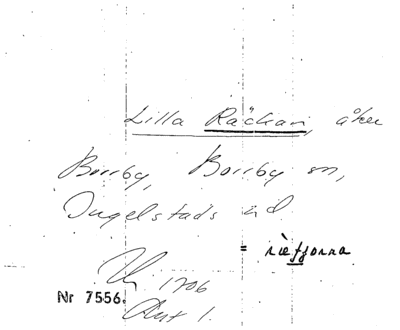 Lilla Räckan, åker
Borrby, Borrby sn,
Ingelstads hd
= ri&fjorra
LM 1706
Nr 7556. Akt 1.